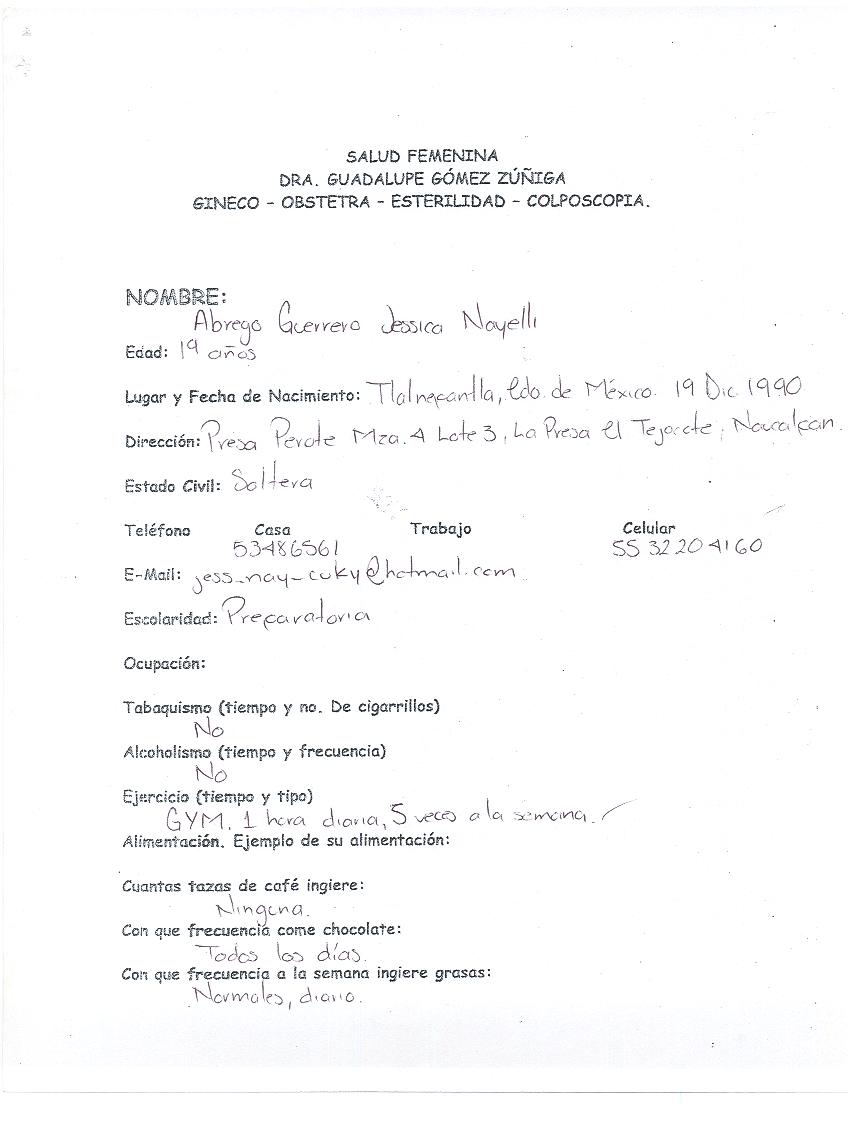 SALUD FEMENINA
DRA. GUADALUPE GÓMEZ ZÚÑIGA
GINECO - OBSTETRA - ESTERILIDAD - COLPOSCOPIA.
NOMBRE:
Abrego Guerrero Jessica Nayelli
Edad: 19 años
Lugar y Fecha de Nacimiento: Tlalnepantla, Edo. de México. 19 Dic. 1990
Dirección: Presa Perote Mza. 4 Lote 3, La Presa el Tejocote, Naucalpan.
Estado Civil: Soltera
Teléfono Casa Trabajo Celular
53486561 55 32 20 41 60
E-Mail: jess_nay_cuky@hotmail.com
Escolaridad: Preparatoria
Ocupación:
Tabaquismo (tiempo y no. De cigarrillos)
No
Alcoholismo (tiempo y frecuencia)
No
Ejercicio (tiempo y tipo)
GYM. 1 hora diaria, 5 veces a la semana.
Alimentación. Ejemplo de su alimentación:
Cuantas tazas de café ingiere:
Ninguna.
Con que frecuencia come chocolate:
Todos los días.
Con que frecuencia a la semana ingiere grasas:
Normales, diario.